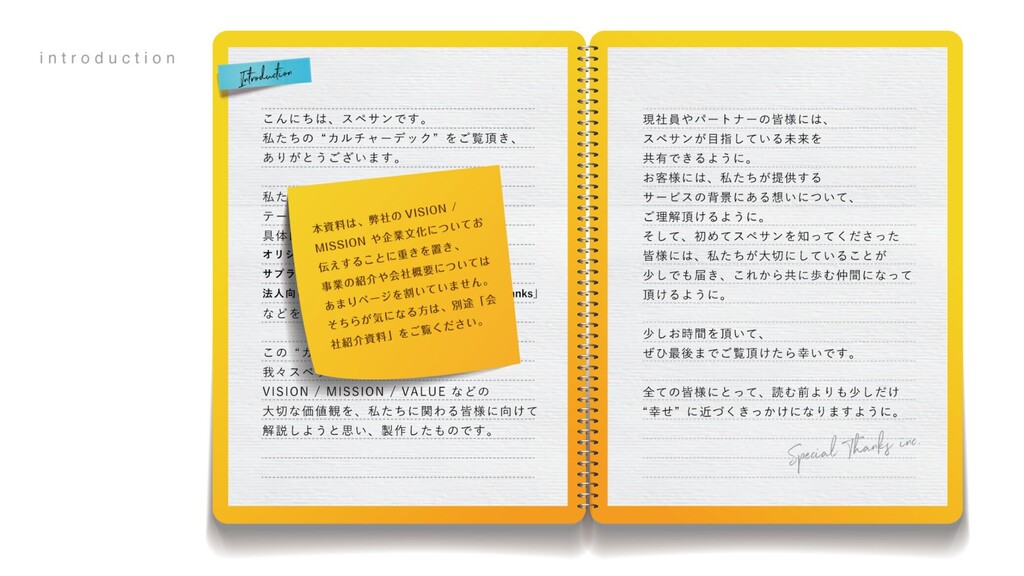 introduction
Introduction
こんにちは、スペサンです。
私たちの“カルチャーデック”をご覧頂き、
ありがとうございます。
私た
テー
具体
オリジ
サプラ
法人向 anks」
などを
本資料は、弊社の VISION /
MISSION や企業文化についてお
伝えすることに重きを置き、
事業の紹介や会社概要については
あまりページを割いていません。
そちらが気になる方は、別途「会
社紹介資料」をご覧ください。
この“カ
我々スペ
VISION / MISSION / VALUE などの
大切な価値観を、私たちに関わる皆様に向けて
解説しようと思い、製作したものです。
現社員やパートナーの皆様には、
スペサンが目指している未来を
共有できるように。
お客様には、私たちが提供する
サービスの背景にある想いについて、
ご理解頂けるように。
そして、初めてスペサンを知ってくださった
皆様には、私たちが大切にしていることが
少しでも届き、これから共に歩む仲間になって
頂けるように。
少しお時間を頂いて、
ぜひ最後までご覧頂けたら幸いです。
全ての皆様にとって、読む前よりも少しだけ
“幸せ”に近づくきっかけになりますように。
Special Thanks inc.